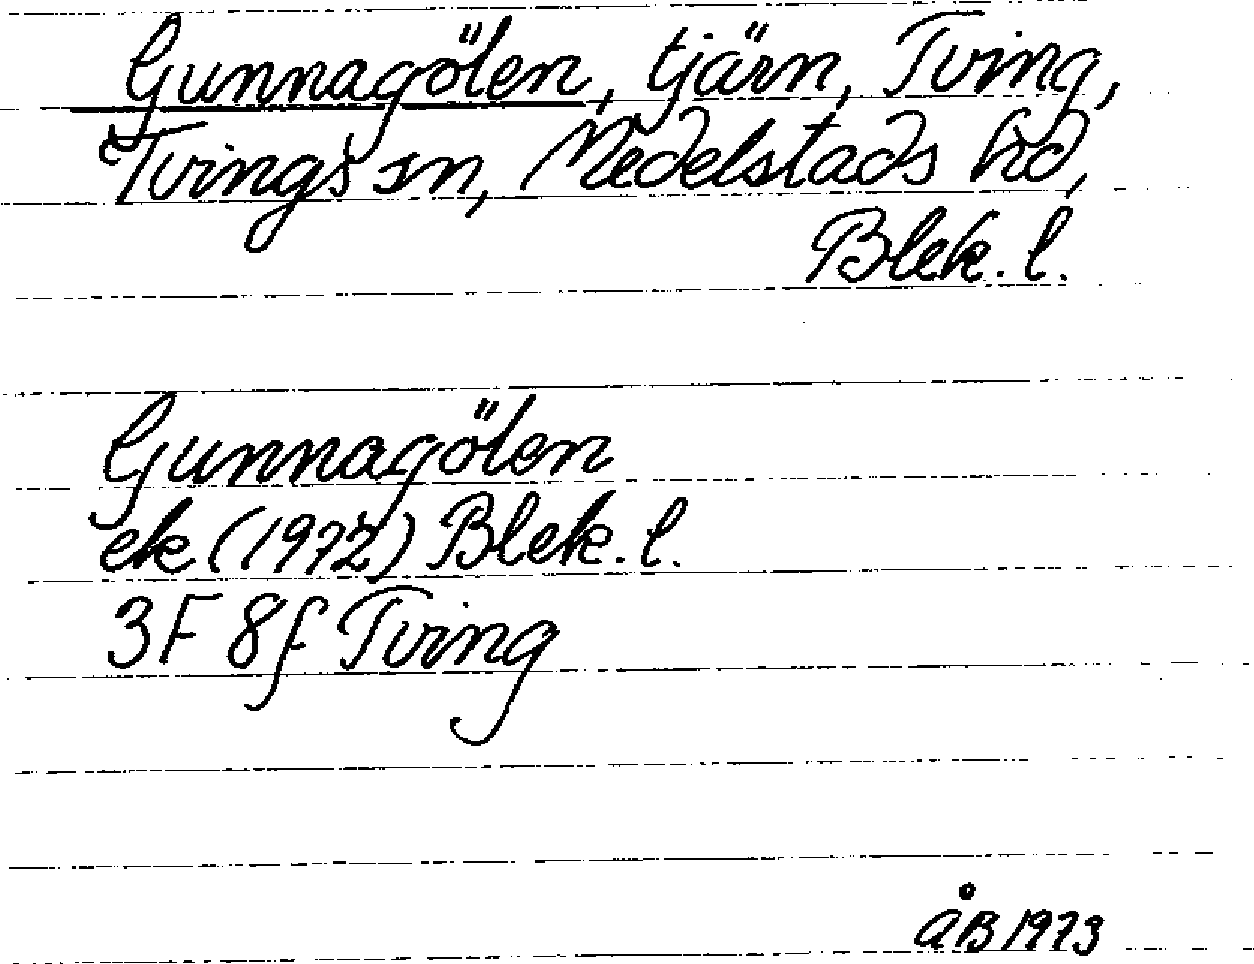 Gunnagölen, tjärn, Tving,
Tvings sn, Medelstads hd,
Blek. l.
Gunnagölen
ek (1972) Blek. l.
3F 8f Tving
ÅB 1973